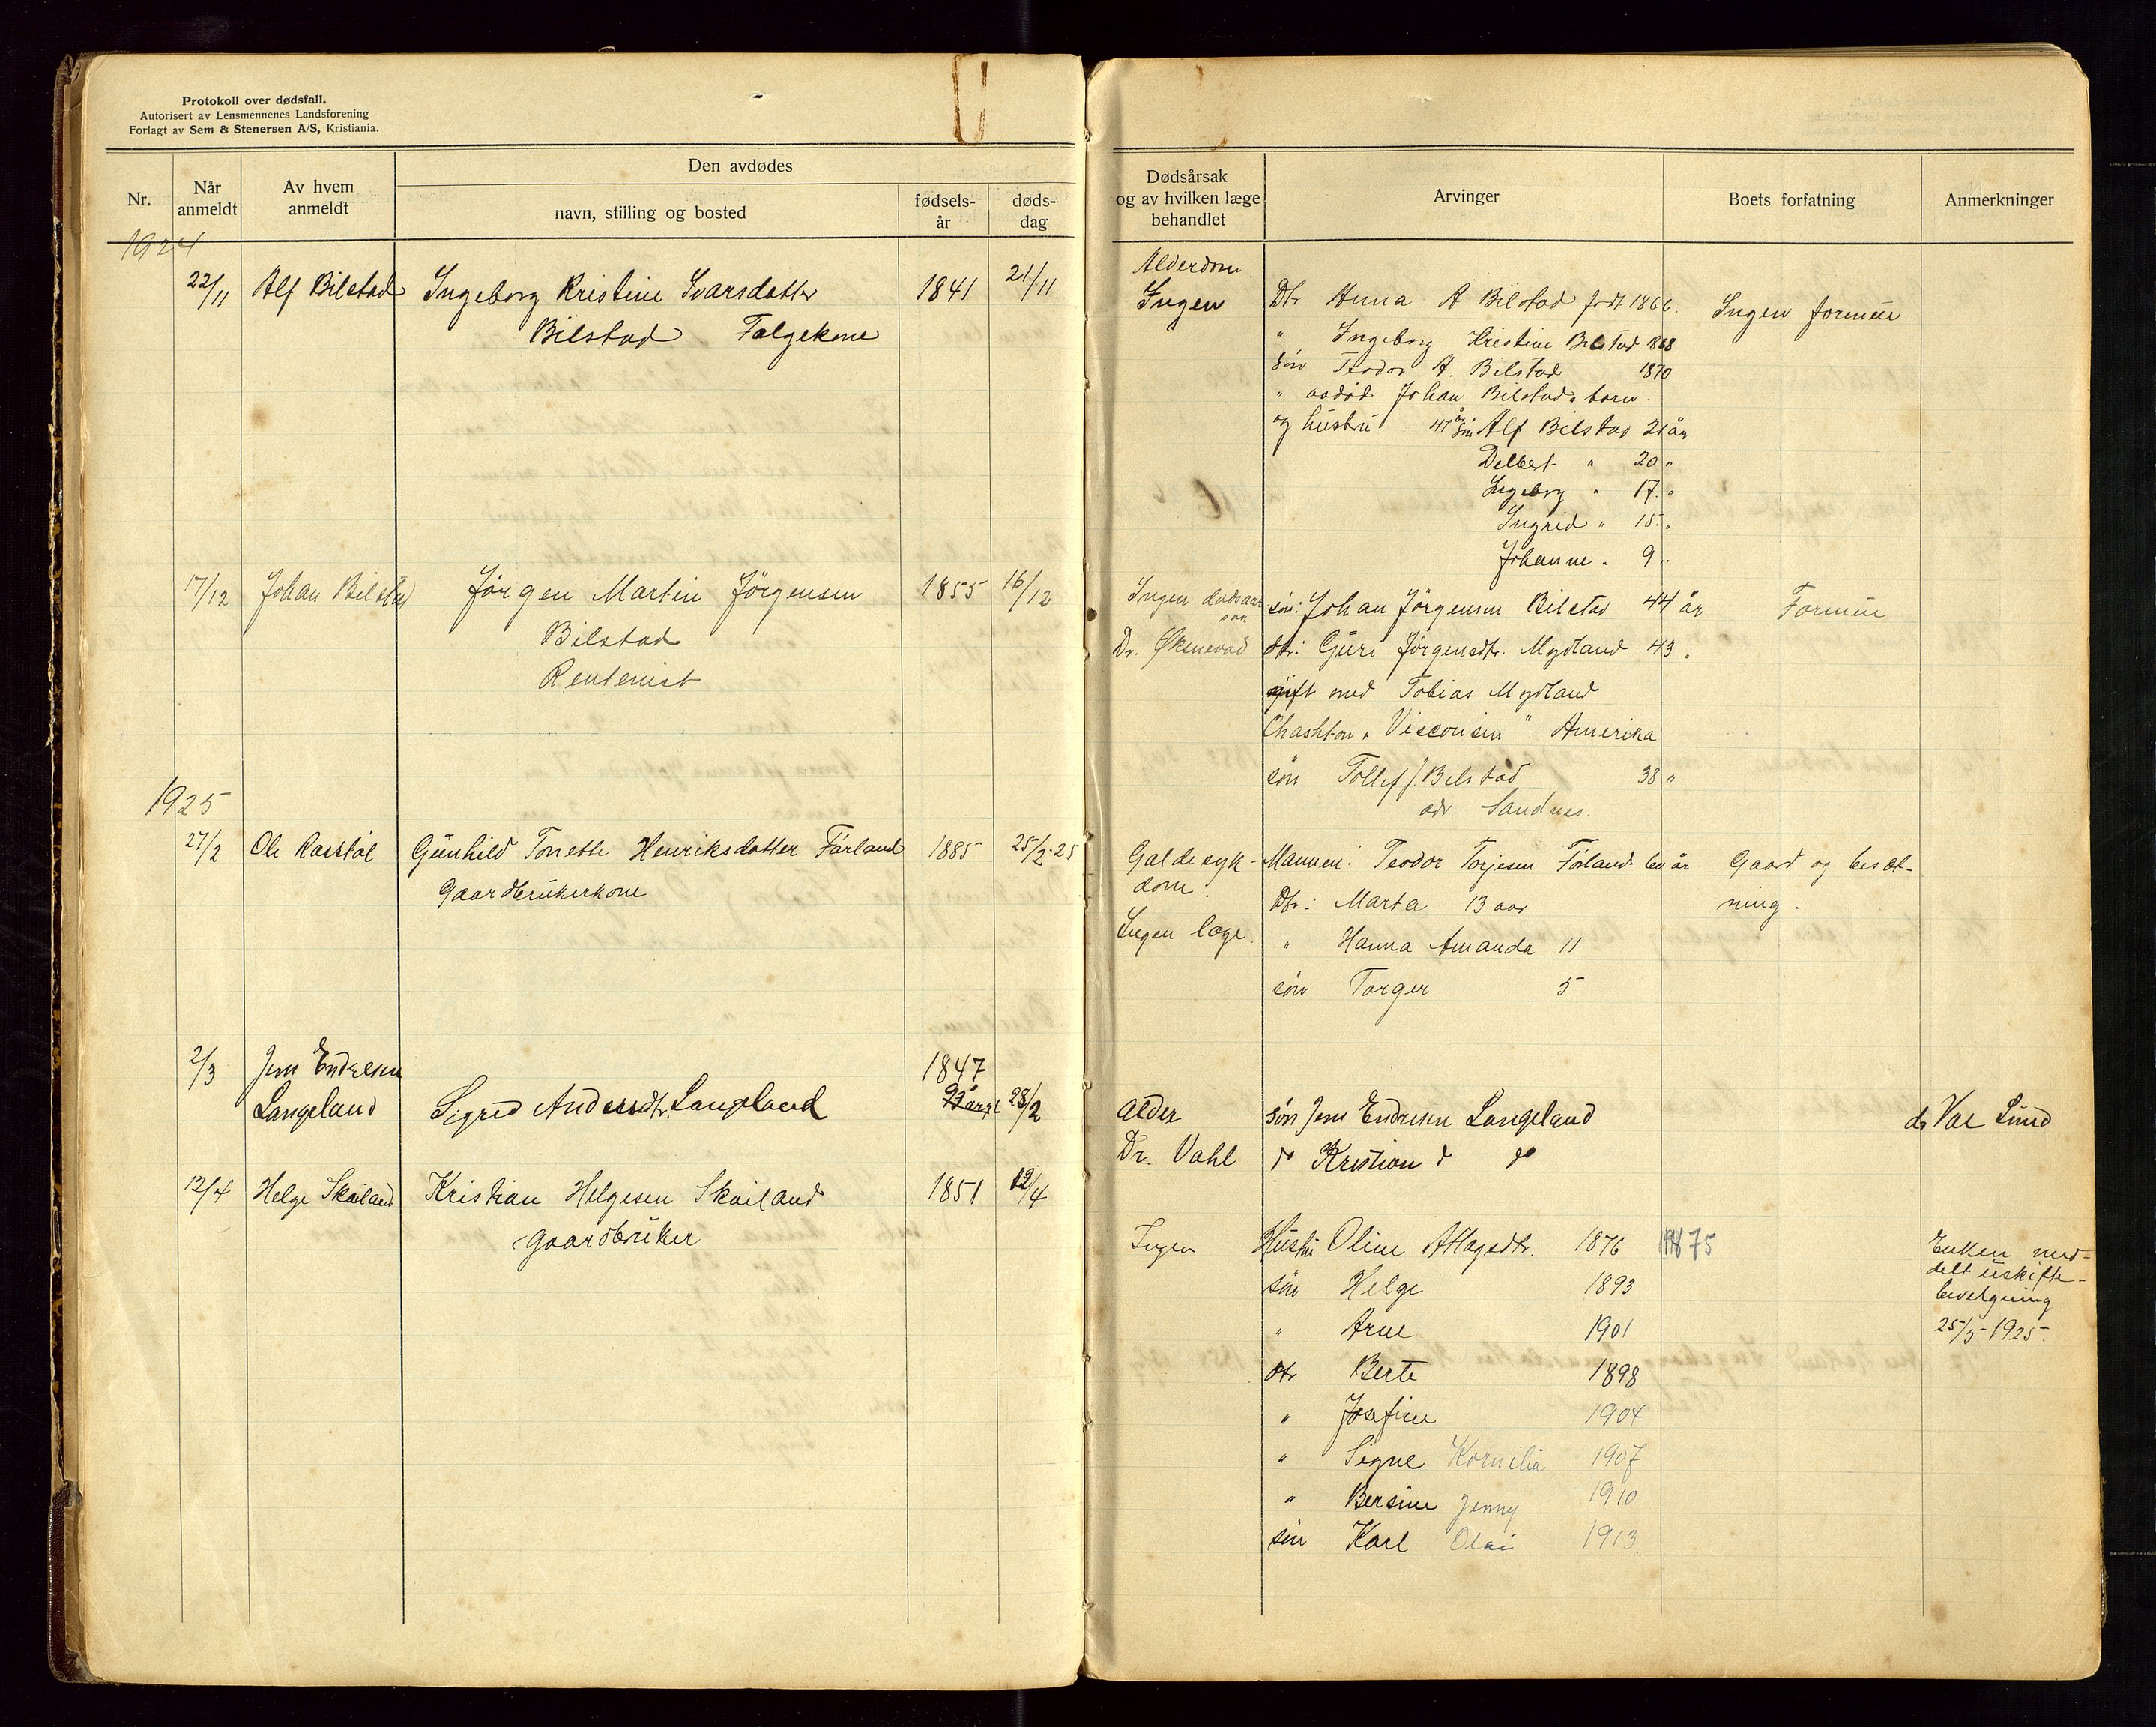 Protokoll over dødsfall.
Autorisert av Lensmennenes Landsforening
Forlagt av Sem & Stenersen A/S, Kristiania.
Nr.
Når anmeldt
Av hvem anmeldt
Den avdødes
navn, stilling og bosted
fødsels-år
døds-dag
1924
22/11 Alf Bilstad Ingeborg Kristine Ivarsdatter 1841 21/11
Bilstad Følgekone
17/12 Johan Bilstad Jørgen Martin Jörgensen 1855 16/12
Bilstad
Rentenist
1925
27/2 Ole Rasstøl Gunhild Tonette HenriksdatterFørland 1885 25/2-25
Gaardbrukerkone
2/3 Jens Endresen 1847
Langeland Sigrid Andersdtr. Langeland 28/2
12/4 Helge Skailand Kristian Helgesen Skailand 1851 12/4
gaardbruker
Dødsårsak
og av hvilken læge
behandlet
Arvinger
Boets forfatning
Anmerkninger
Alderdom.
Ingen Dtr Anna A Bilstad født 1866. Ingen formue
" Ingeborg Kristine Bilstad 1868
Søn Teodor A. Bilstad 1870
" avdød Johan Bilstads barn.
og hustru 47 år. Søn Alf Bilstad 21 år
Delbert " 20 "
Ingeborg " 17 "
Ingrid " 15 "
Johanne " 9 "
Ingen dødsaarsak søn: Johan Jörgensen Bilstad 44 år Formue
Dr. Øksnevad dtr: Guri Jørgensdtr. Mydland 43 "
gift med Tobias Mydland
Chashton " Visconsin " Amerika
søn Tollef J. Bilstad 38 "
adr. Sandnes.
Galdesyk- Mannen: Teodor Torjesen Førland 60 år Gaard og besæt-
dom. Dtr: Marta 13 aar ning.
Ingen læge. " Hanna Amanda 11
søn Torger 5
Alder søn Jens Endresen Langeland do Val Lund
Dr. Vahl do Kristian do do
Ingen Hustru Oline Aslagsdtr. 1876 1875 Enken med-
delt uskifte-
bevilgning
25/5-1925.
søn Helge 1893
" Arne 1901
dtr Berte 1898
" Josefine 1904
" Signe Kornelia 1907
" Bersine Jenny 1910
søn Karl Olai 1913.